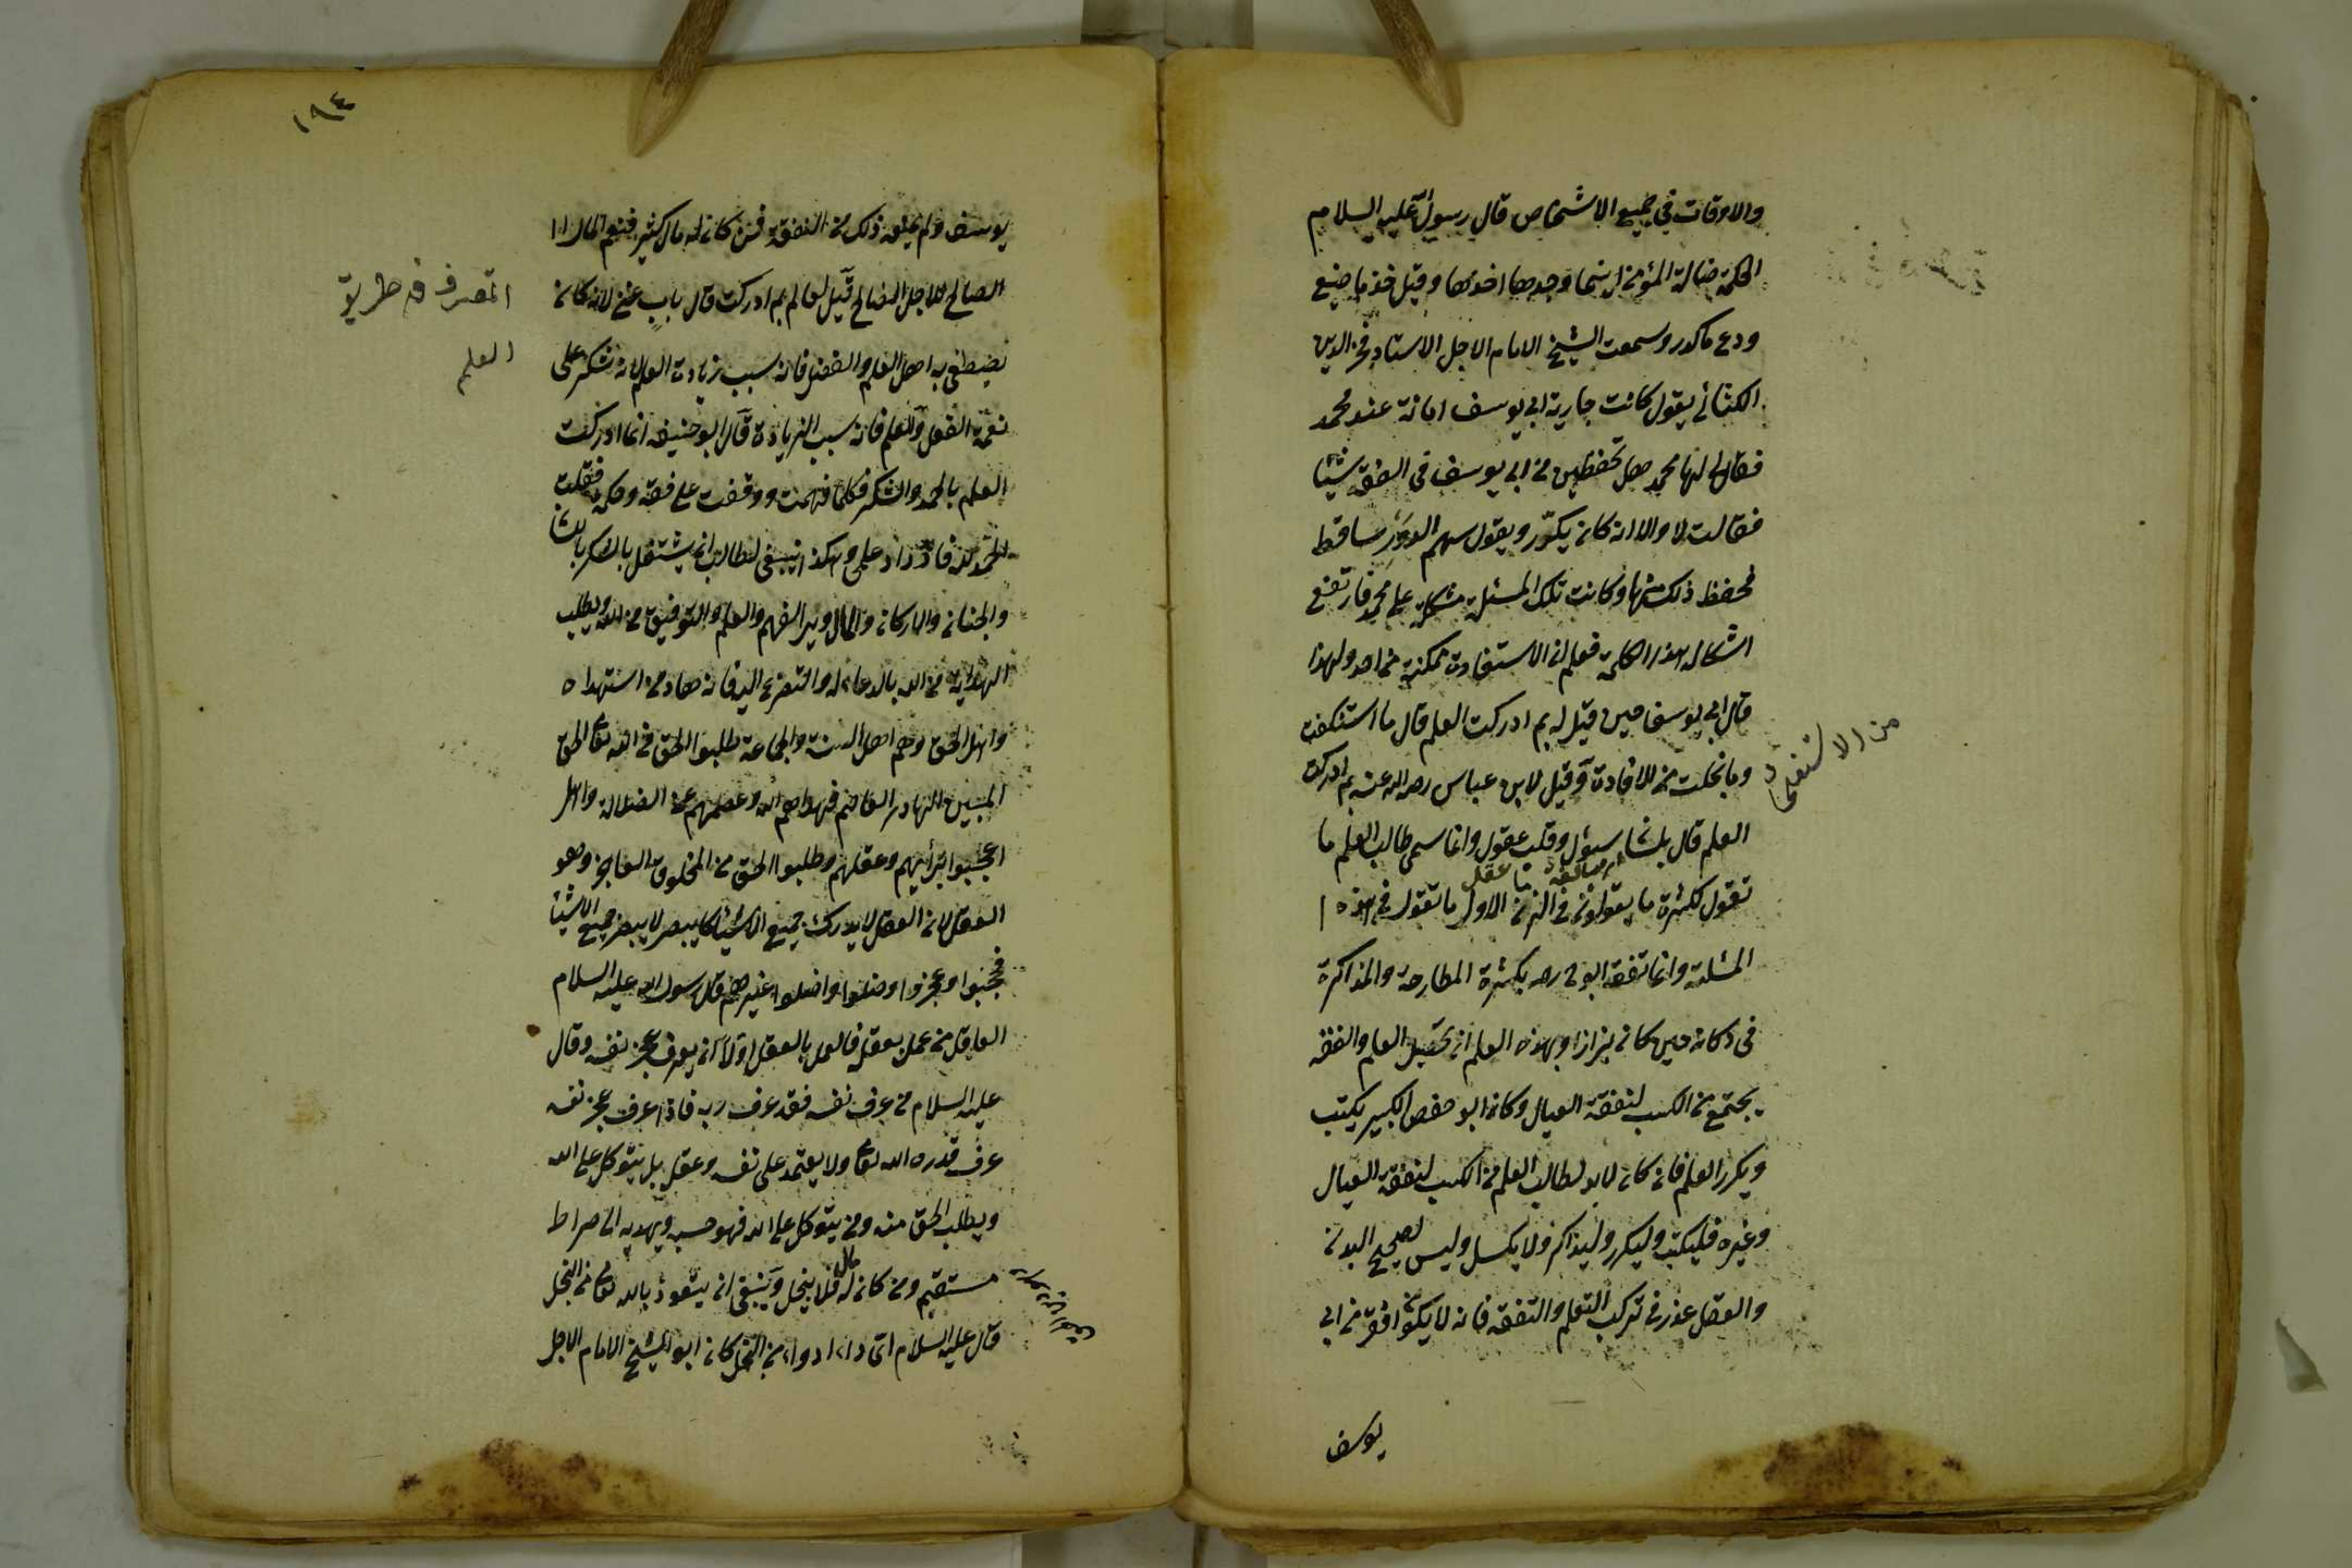 والاوقات في جميع الاشخاص قال رسول الله عليه السلام
الحكمة ضالة المؤمن اينما وجدها اخذها وقيل خذ ما صفى
ودع ما كدر وسمعت الشيخ الامام الاجل الاستاد فخر الدين
الكثاني يقول كانت جارية ابي يوسف امانة عند محمد
فقال لها محمد هل تحفظين من ابي يوسف في الفقه شيئا
فقالت لا والا انه كان يكرّر ويقول سهم الدور ساقط
فحفظ ذلك منها وكانت تلك المسئلة مشكلة على محمد فارتفع
اشكاله بهذا الكلمة فعلم ان الاستفادة ممكنة من احد ولهذا
قال ابي يوسف حين قيل له بم ادركت العلم قال ما استنكفت
من الاستفادة
وما بخلت من الافادة وقيل لابن عباس رضى الله عنه بم ادركت
العلم قال بلسان سئول وقلب عقول وانما سمى طالب العلم ما
تقول لكثرة ما يقولون في الزمن الاول ما تقول في هذه
المسئلة وانما تفقه ابو ح رحمه بكثرة المطارحة والمذاكرة
في دكانه حين كان بزازا وبهذه العلم ان تحصيل العلم والفقه
يجتمع من الكسب لنفقة العيال وكان ابو حفص الكبير يكتب
ويكرر العلم فان كان لابد لطالب العلم من الكسب لنفقة العيال
وغيره فليكتب وليكرر وليذاكر ولا يكسل وليس لصحيح البدن
والعقل عذر في ترك التعلم والتفقه فانه لا يكون افقر من ابي
يوسف
١٩٤
يوسف ولم يمنعه ذلك من التفقه فمن كان له مال كثير فنعم المال
الصالح للاجل الصالح قيل لعالم بم ادركت قال باب غني لانه كان
التصرف في طريق
العلم
يصطفى به اهل العلم والفضل فانه سبب زيادة العلم لانه شكر على
نعمة العقل والعلم فانه سبب الزيادة قال ابو حنيفه انما ادركت
العلم بالحمد والشكر فكلما فهمت ووقفت على فقه وحكمة فقلت
الحمد لله فازداد علمي وهكذا ينبغى لطالب ان يشتغل بالشكر باللسان
والجنان والاركان والمال ويرى الفهم والعلم والتوفيق من الله ويطلب
الهداية من الله بالدعاء له والتضرع اليه فانه هاد من استهداه
واهل الحق وهم اهل السنة والجماعة طلبوا الحق من الله تعالى الحق
المبين الهادى العاصم فهداهم الله وعصمهم عن الضلالة واهل
اعجبوا برأيهم وعقلهم وطلبوا الحق من المخلوق العاجز وهو
العقل لان العقل لا يدرك جميع الاشيا كالبصر لا يبصر جميع الاشيا
فحجبوا وعجزوا وضلوا واضلوا غيرهم قال رسول الله عليه السلام
العاقل من عمل بعقله فالعمل بالعقل اولا ان يعرف عجز نفسه وقال
عليه السلام من عرف نفسه فقد عرف ربه فاذا عرف عجز نفسه
عرف قدره الله تعالى ولا يعتمد على نفسه وعقله بل يتوكل على الله
ويطلب الحق منه ومن يتوكل على الله فهو حسبه ويهديه الى صراط
مستقيم ومن كان له مال فلا يبخل وينبغى ان يتعوذ بالله تعالى من البخل
قال عليه السلام اى داء ادواء من البخل كان ابو الشيخ الامام الاجل